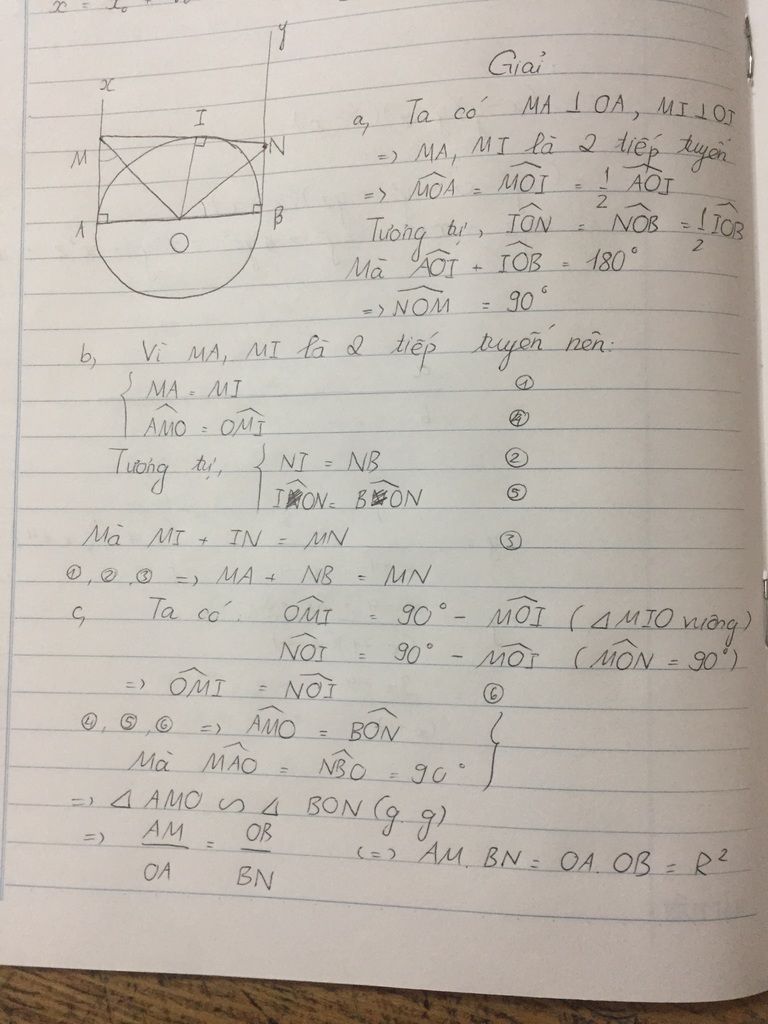 y
x
I
M
N
A
B
O
Giải
a, Ta có MA ⊥ OA, MI ⊥ OI
=> MA, MI là 2 tiếp tuyến
=> \widehat{MOA} = \widehat{MOI} = \frac{1}{2} \widehat{AOI}
Tương tự, \widehat{ION} = \widehat{NOB} = \frac{1}{2} \widehat{IOB}
Mà \widehat{AOI} + \widehat{IOB} = 180°
=> \widehat{NOM} = 90°
b, Vì MA, MI là 2 tiếp tuyến nên:
{ MA = MI ①
\widehat{AMO} = \widehat{OMI} ④
Tương tự, { NI = NB ②
\widehat{ION} = \widehat{BON} ⑤
Mà MI + IN = MN ③
①, ②, ③ => MA + NB = MN
c, Ta có: \widehat{OMI} = 90° - \widehat{MOI} (Δ MIO vuông)
\widehat{NOI} = 90° - \widehat{MOI} (\widehat{MON} = 90°)
=> \widehat{OMI} = \widehat{NOI} ⑥
④, ⑤, ⑥ => \widehat{AMO} = \widehat{BON} }
Mà \widehat{MAO} = \widehat{NBO} = 90°
=> Δ AMO ∽ Δ BON (g.g)
=> \frac{AM}{OA} = \frac{OB}{BN} <=> AM. BN = OA. OB = R²